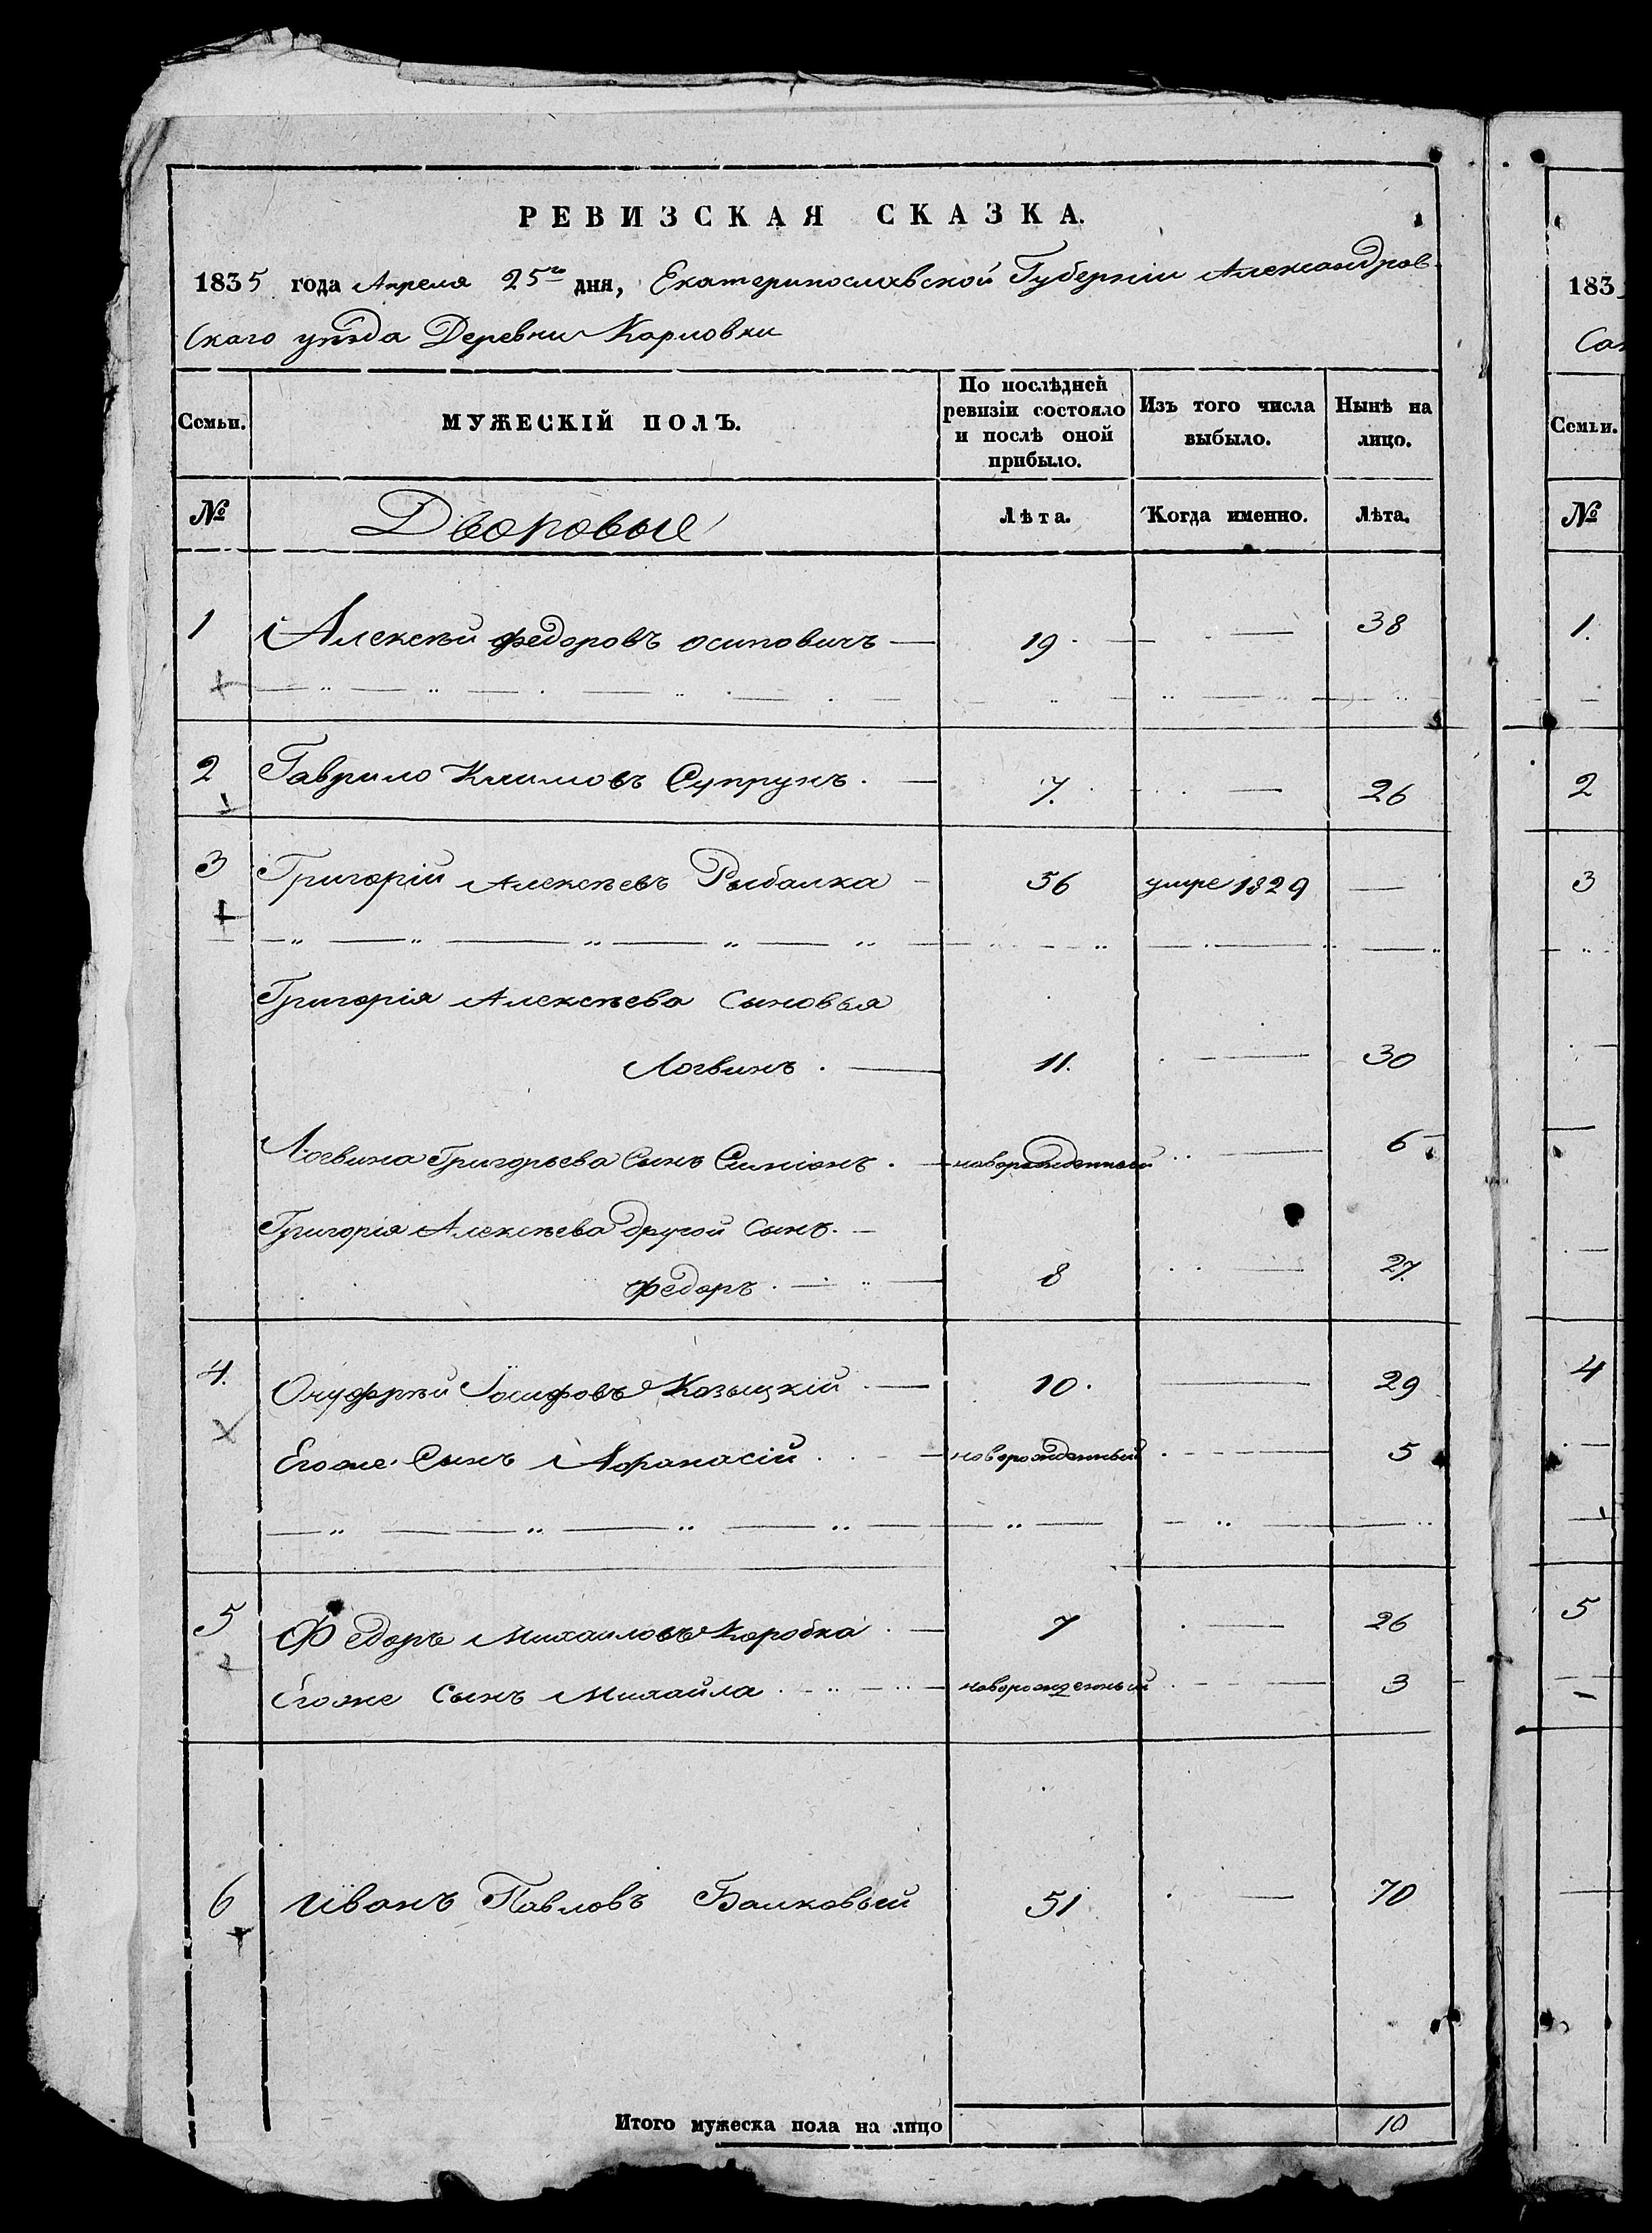 РЕВИЗСКАЯ СКАЗКА.
1835 года Апреля 25го дня, Екатеринославской Губерніи Александров-
скаго уѣзда Деревни Карловки
Семьи. МУЖЕСКІЙ ПОЛЪ. По послѣдней ревизіи состояло и послѣ оной прибыло. Изъ того числа выбыло. Нынѣ на лицо.
№ Дворовые Лѣта. Когда именно. Лѣта.
1 Алексѣй Федоровъ Осиповичъ — 19 — 38
2 Гаврило Климовъ Супрунъ. — 7. — 26
3 Григорій Алексѣевъ Рыбалка — 56 умре 1829 —
Григорія Алексѣева Сыновья
Логвинъ. — 11. — 30
Логвина Григорьева Сынъ Симіонъ. — новорожденный — 6
Григорія Алексѣева другой Сынъ. —
Федоръ. — 8 — 27.
4. Онуфрѣй Іосифовъ Козыцкій — 10. — 29
Егоже Сынъ Афанасій — новорожденный — 5
5 Федоръ Михаиловъ Коробка — 7 — 26
Егоже Сынъ Михайла — новорожденный — 3
6 Иванъ Павловъ Балковый 51 — 70
Итого мужеска пола на лицо 10
183
Семьи.
№
1.
2
3
4
5